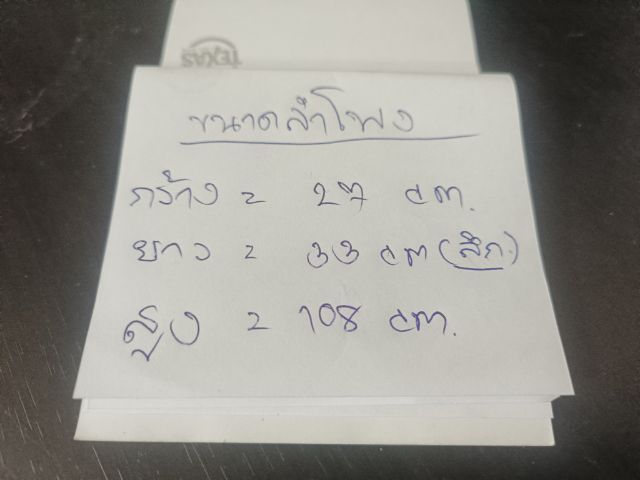 TEXAS
ขนาดลำโพง
กว้าง = 27 cm.
ยาว = 33 cm (ลึก.)
สูง = 108 cm.